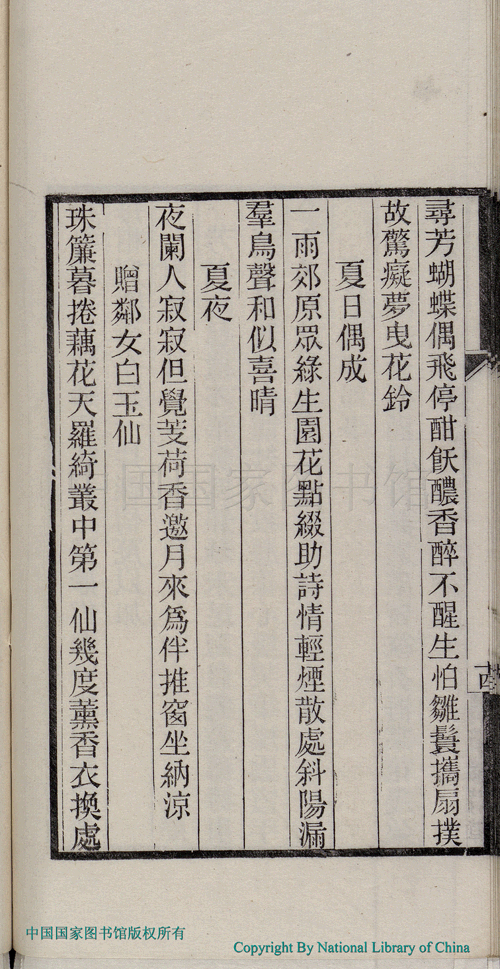 尋芳蝴蝶偶飛停酣飫醲香醉不醒生怕雛鬟攜扇撲
故驚癡夢曳花鈴
夏日偶成
一雨郊原眾綠生園花點綴助詩情輕煙散處斜陽漏
羣鳥聲和似喜晴
夏夜
夜闌人寂寂但覺芰荷香邀月來爲伴推窗坐納涼
贈鄰女白玉仙
珠簾暮捲藕花天羅綺叢中第一仙幾度薰香衣換處
中国国家图书馆版权所有
Copyright By National Library of China